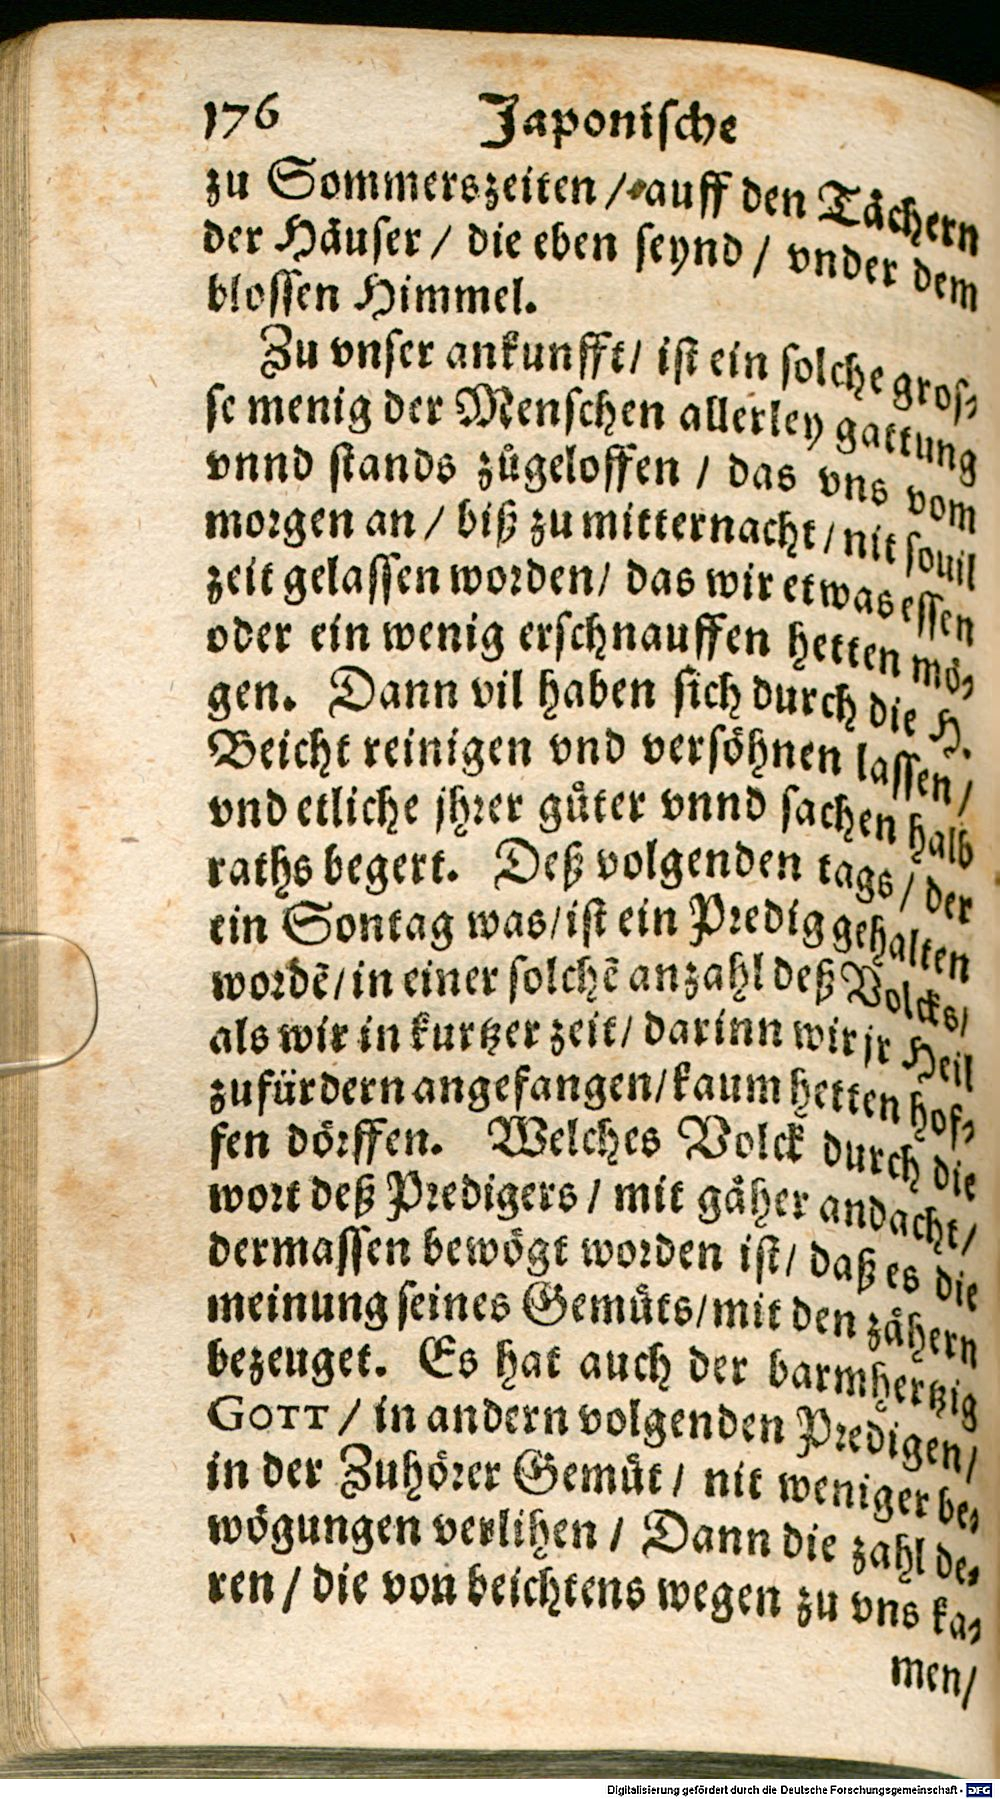 176 Japonische
zu Sommerszeiten / auff den Tächern
der Häuser / die eben seynd / vnder dem
blossen Himmel.
Zu vnser ankunfft / ist ein solche gros-
se menig der Menschen allerley gattung
vnnd stands zůgeloffen / das vns vom
morgen an / biß zu mitternacht / nit souil
zeit gelassen worden / das wir etwas essen
oder ein wenig erschnauffen hetten mö-
gen. Dann vil haben sich durch die H.
Beicht reinigen vnd versöhnen lassen /
vnd etliche jhrer güter vnnd sachen halb
raths begert. Deß volgenden tags / der
ein Sontag was / ist ein Predig gehalten
wordẽ / in einer solchẽ anzahl deß Volcks /
als wir in kurtzer zeit / darinn wir jr Heil
zufürdern angefangen / kaum hetten hof-
fen dörffen. Welches Volck durch die
wort deß Predigers / mit gäher andacht /
dermassen bewögt worden ist / daß es die
meinung seines Gemüts / mit den zähern
bezeuget. Es hat auch der barmhertzig
GOTT / in andern volgenden Predigen /
in der Zuhörer Gemüt / nit weniger be-
wögungen verlihen / Dann die zahl de-
ren / die von beichtens wegen zu vns ka-
men /
Digitalisierung gefördert durch die Deutsche Forschungsgemeinschaft - DFG